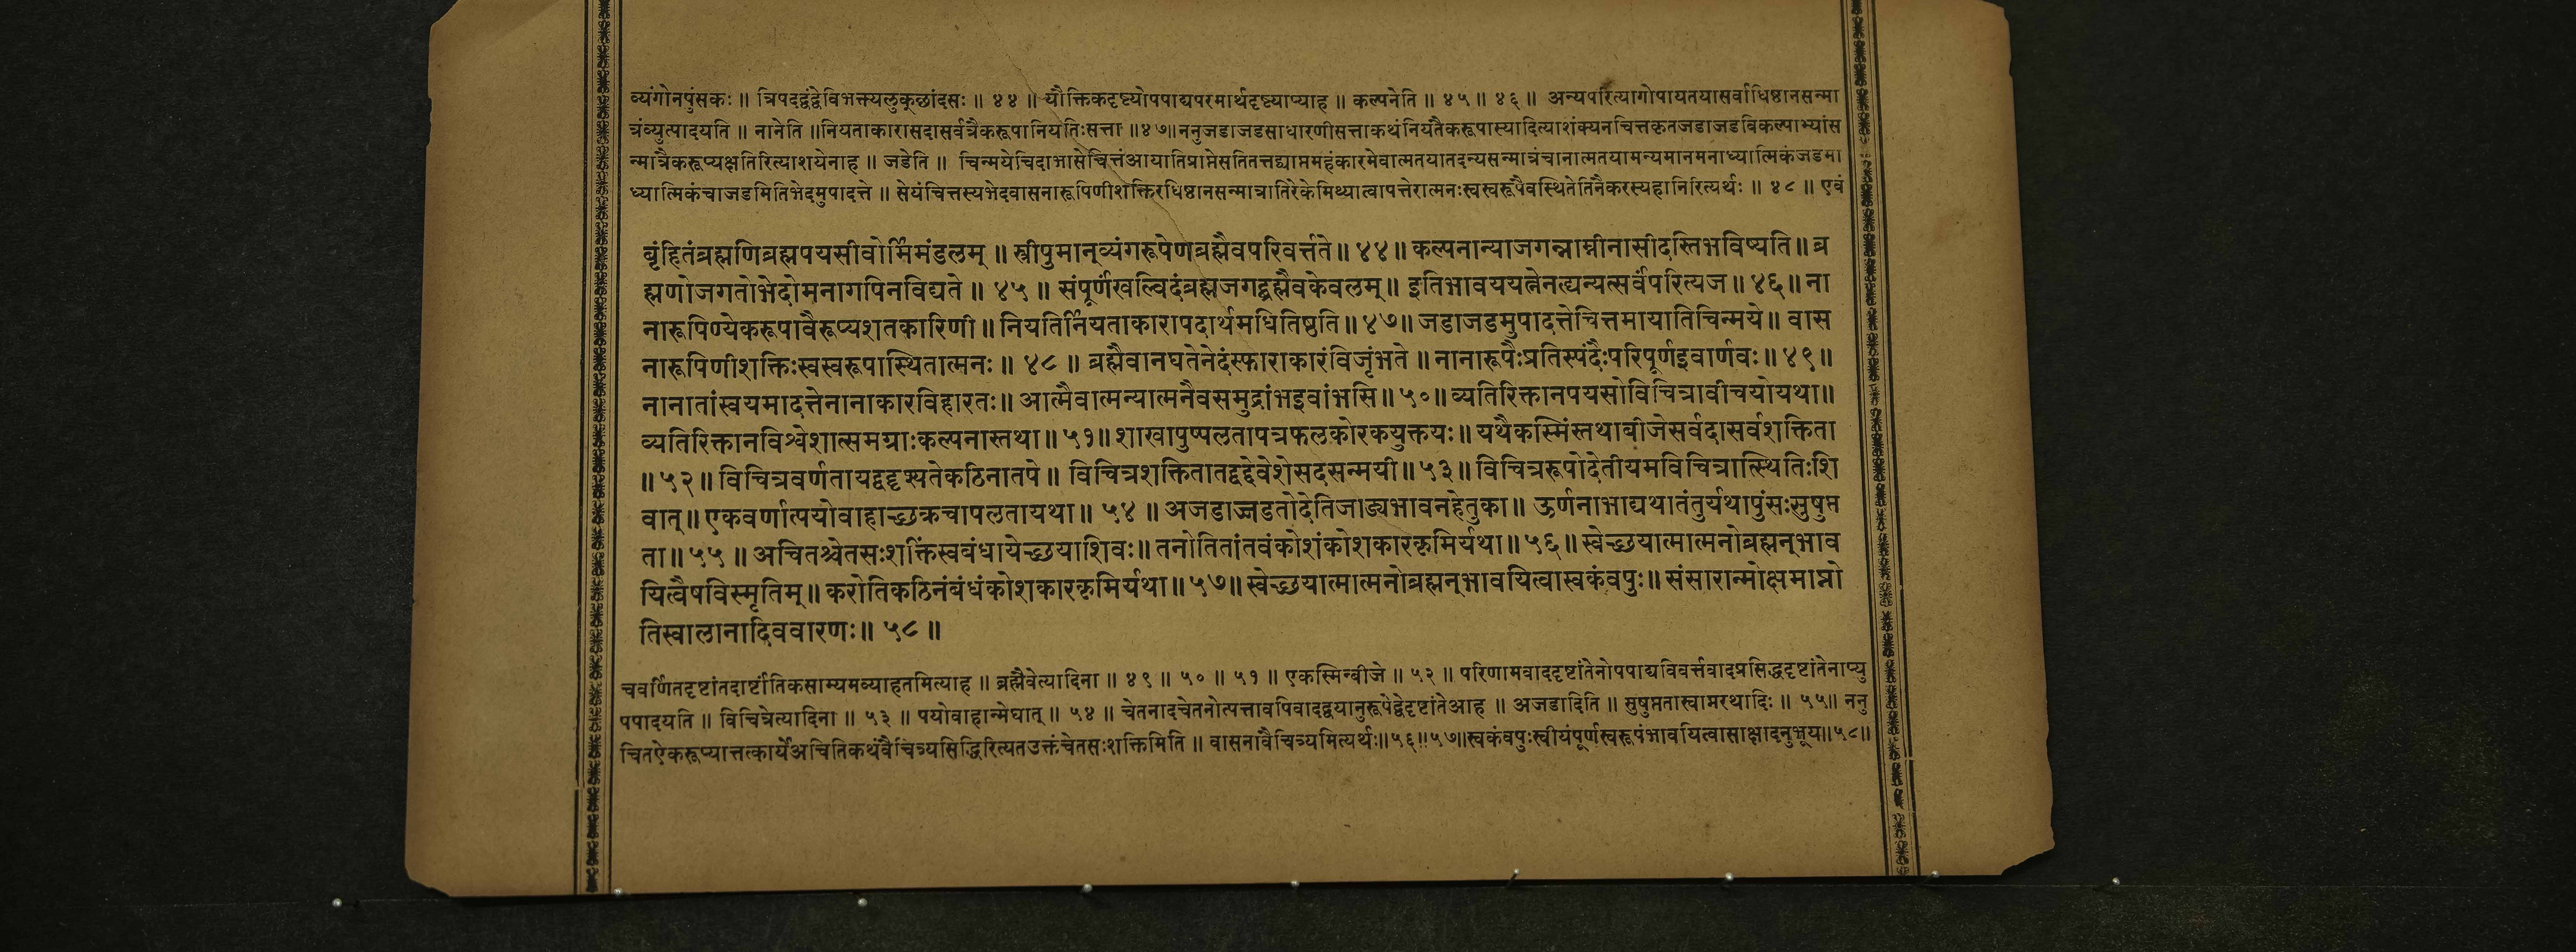 व्यंगोनपुंसकः ॥ त्रिपदद्वंद्वेविभक्त्यलुक्छांदसः ॥ ४४ ॥ यौक्तिकदृष्ट्योपपाद्यपरमार्थदृष्ट्याप्याह ॥ कल्पनेति ॥ ४५ ॥ ४६ ॥ अन्यपरित्यागोपायतयासर्वाधिष्ठानसन्मा
त्रंव्युत्पादयति ॥ नानेति ॥ नियताकारासदासर्वत्रैकरूपानियतिःसत्ता ॥ ४७ ॥ ननुजडाजडसाधारणीसत्ताकथंनियतैकरूपास्यादित्याशंक्यनचित्तकृतजडाजडविकल्पाभ्यांस
न्मात्रैकरूप्यक्षतिरित्याशयेनाह ॥ जडेति ॥ चिन्मयेचिदाभासेचित्तंआयातिप्राप्तेसतितत्तद्व्याप्तमहंकारमेवात्मतयातदन्यसन्मात्रंचानात्मतयामन्यमानमनाध्यात्मिकंजडमा
ध्यात्मिकंचाजडमितिभेदमुपादत्ते ॥ सेयंचित्तस्यभेदवासनारूपिणीशक्तिरधिष्ठानसन्मात्रातिरेकेमिथ्यात्वापत्तेरात्मनःस्वस्वरूपैवस्थितेतिनैकरस्यहानिरित्यर्थः ॥ ४८ ॥ एवं
बृंहितंब्रह्मणिब्रह्मपयसीवोर्मिमंडलम् ॥ स्त्रीपुमान्व्यंगरूपेणब्रह्मैवपरिवर्त्तते ॥ ४४ ॥ कल्पनान्याजगन्नाम्नीनासीदस्तिभविष्यति ॥ ब्र
ह्मणोजगतोभेदोमनागपिनविद्यते ॥ ४५ ॥ संपूर्णंखल्विदंब्रह्मजगद्ब्रह्मैवकेवलम् ॥ इतिभावययत्नेनत्द्यन्यत्सर्वंपरित्यज ॥ ४६ ॥ ना
नारूपिण्येकरूपावैरूप्यशतकारिणी ॥ नियतिर्नियताकारापदार्थमधितिष्ठति ॥ ४७ ॥ जडाजडमुपादत्तेचित्तमायातिचिन्मये ॥ वास
नारूपिणीशक्तिःस्वस्वरूपास्थितात्मनः ॥ ४८ ॥ ब्रह्मैवानघतेनेदंस्फाराकारंविजृंभते ॥ नानारूपैःप्रतिस्पंदैःपरिपूर्णइवार्णवः ॥ ४९ ॥
नानातांस्वयमादत्तेनानाकारविहारतः ॥ आत्मैवात्मन्यात्मनैवसमुद्रांभइवांभसि ॥ ५० ॥ व्यतिरिक्तानपयसोविचित्रावीचयोयथा ॥
व्यतिरिक्तानविश्वेशात्समग्राःकल्पनास्तथा ॥ ५१ ॥ शाखापुष्पलतापत्रफलकोरकयुक्तयः ॥ यथैकस्मिंस्तथाबीजेसर्वदासर्वशक्तिता
॥ ५२ ॥ विचित्रवर्णतायद्वद्दृश्यतेकठिनातपे ॥ विचित्रशक्तितातद्वद्देवेशेसदसन्मयी ॥ ५३ ॥ विचित्ररूपोदेतीयमविचित्रात्स्थितिःशि
वात् ॥ एकवर्णात्पयोवाहाच्छक्रचापलतायथा ॥ ५४ ॥ अजडाज्जडतोदेतिजाड्यभावनहेतुका ॥ ऊर्णनाभाद्यथातंतुर्यथापुंसःसुषुप्त
ता ॥ ५५ ॥ अचितश्चेतसःशक्तिंस्वबंधायेच्छयाशिवः ॥ तनोतितांतवंकोशंकोशकारकृमिर्यथा ॥ ५६ ॥ स्वेच्छयात्मात्मनोब्रह्मन्भाव
यित्वैषविस्मृतिम् ॥ करोतिकठिनंबंधंकोशकारकृमिर्यथा ॥ ५७ ॥ स्वेच्छयात्मात्मनोब्रह्मन्भावयित्वास्वकंवपुः ॥ संसारान्मोक्षमाप्नो
तिस्वालानादिववारणः ॥ ५८ ॥
चवर्णितदृष्टांतदार्ष्टांतिकसाम्यमव्याहतमित्याह ॥ ब्रह्मैवेत्यादिना ॥ ४९ ॥ ५० ॥ ५१ ॥ एकस्मिन्बीजे ॥ ५२ ॥ परिणामवाददृष्टांतेनोपपाद्यविवर्त्तवादप्रसिद्धदृष्टांतेनाप्यु
पपादयति ॥ विचित्रेत्यादिना ॥ ५३ ॥ पयोवाहान्मेघात् ॥ ५४ ॥ चेतनादचेतनोत्पत्तावपिवादद्वयानुरूपेद्वेदृष्टांतेआह ॥ अजडादिति ॥ सुषुप्ततास्वाप्नरथादिः ॥ ५५ ॥ ननु
चितऐकरूप्यात्तत्कार्येअचितिकथंवैचित्र्यसिद्धिरित्यतउक्तंचेतसःशक्तिमिति ॥ वासनावैचित्र्यमित्यर्थः ॥ ५६ ॥ ५७ ॥ स्वकंवपुःस्वीयंपूर्णस्वरूपंभावयित्वासाक्षादनुभूय ॥ ५८ ॥